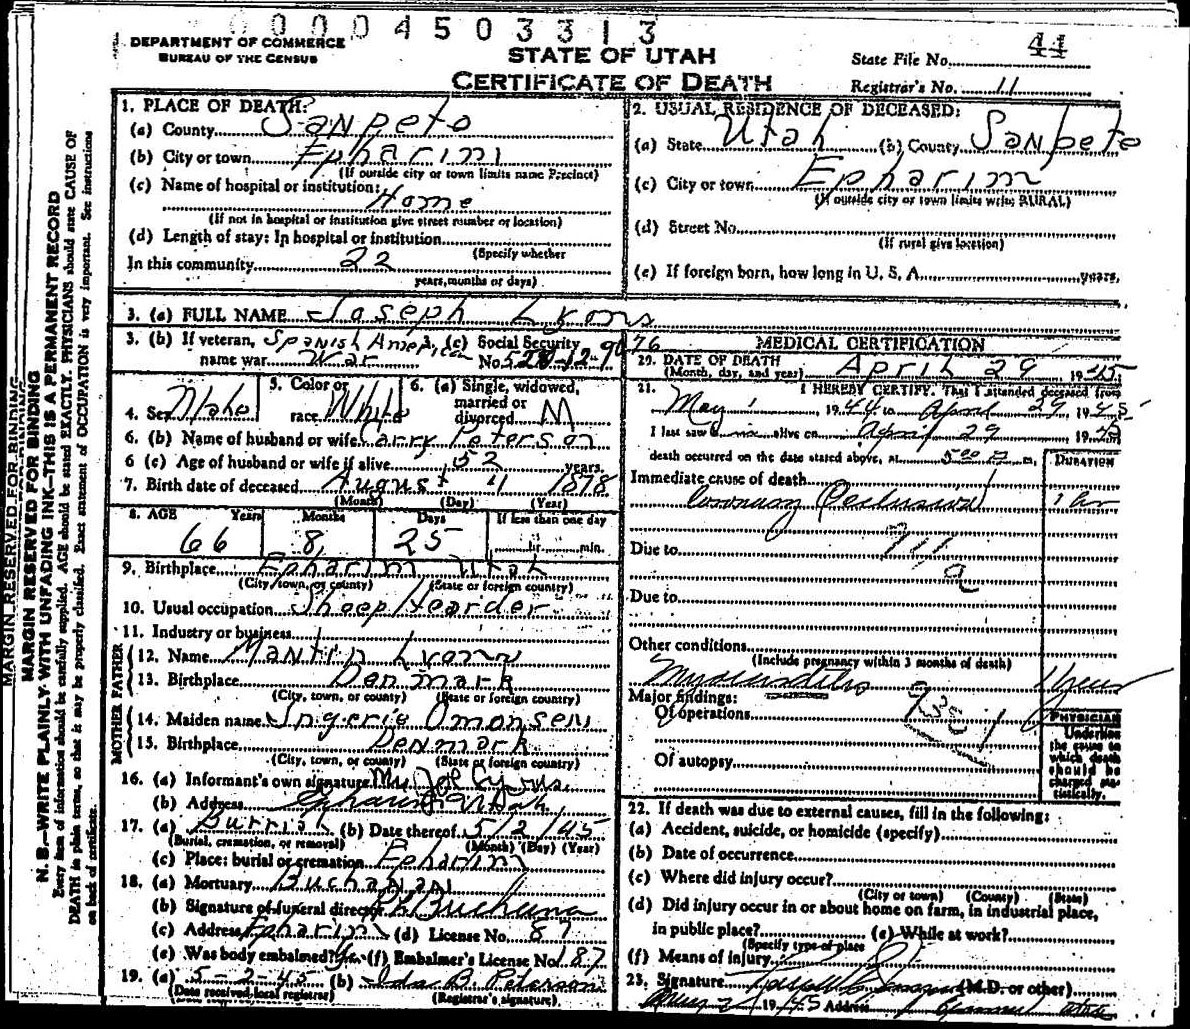 0 0 0 0 4 5 0 3 3 1 3
DEPARTMENT OF COMMERCE
BUREAU OF THE CENSUS
STATE OF UTAH
CERTIFICATE OF DEATH
State File No. 44
Registrar's No. 11
MARGIN RESERVED FOR BINDING
MARGIN RESERVED FOR BINDING
N. B.—WRITE PLAINLY WITH UNFADING INK—THIS IS A PERMANENT RECORD
Every item of information should be carefully supplied. AGE should be stated EXACTLY. PHYSICIANS should state CAUSE OF
DEATH in plain terms, so that it may be properly classified. Exact statement of OCCUPATION is very important. See instructions
on back of certificate.
1. PLACE OF DEATH:
(a) County Sanpete
(b) City or town Epharim
(If outside city or town limits name Precinct)
(c) Name of hospital or institution:
Home
(If not in hospital or institution give street number or location)
(d) Length of stay: In hospital or institution
(Specify whether
In this community 22
years, months or days)
2. USUAL RESIDENCE OF DECEASED:
(a) State Utah (b) County Sanpete
(c) City or town Epharim
(If outside city or town limits write RURAL)
(d) Street No.
(If rural give location)
(e) If foreign born, how long in U. S. A. years.
3. (a) FULL NAME Joseph Lyons
3. (b) If veteran, name war Spanish American War
(c) Social Security No. 528-12-9076
4. Sex Male
5. Color or race White
6. (a) Single, widowed, married or divorced M
6. (b) Name of husband or wife Carry Peterson
6 (c) Age of husband or wife if alive 52 years.
7. Birth date of deceased August 4 1878
(Month) (Day) (Year)
8. AGE Years Months Days If less than one day
66 8 25 hr. min.
9. Birthplace Epharim Utah
(City, town, or county) (State or foreign country)
10. Usual occupation Sheep Hearder
11. Industry or business
FATHER
12. Name Lyons
13. Birthplace Denmark
(City, town, or county) (State or foreign country)
MOTHER
14. Maiden name Omonsen
15. Birthplace Denmark
(City, town, or county) (State or foreign country)
16. (a) Informant's own signature Mrs Joe Lyons
(b) Address Epharim Utah
17. (a) Burrial (b) Date thereof 5/2/45
(Burial, cremation, or removal) (Month) (Day) (Year)
(c) Place: burial or cremation Epharim
18. (a) Mortuary Buchanan
(b) Signature of funeral director
(c) Address Epharim (d) License No. 87
(e) Was body embalmed? Yes (f) Embalmer's License No. 187
19. (a) 5-2-45 (b) Ida B. Peterson
(Date received local registrar) (Registrar's signature)
MEDICAL CERTIFICATION
20. DATE OF DEATH April 29 1945
(Month, day, and year)
21. I HEREBY CERTIFY, That I attended deceased from
May 1 1944 to April 29 1945
I last saw him alive on April 29 1945
death occurred on the date stated above, at 5:00 P m.
DURATION
Immediate cause of death
Coronary Occlusion 1 hr
Due to
Due to
Other conditions
(Include pregnancy within 3 months of death)
Myocarditis 1 year
Major findings:
Of operations
Of autopsy
PHYSICIAN
Underline
the cause to
which death
should be
charged sta-
tistically.
22. If death was due to external causes, fill in the following:
(a) Accident, suicide, or homicide (specify)
(b) Date of occurrence
(c) Where did injury occur?
(City or town) (County) (State)
(d) Did injury occur in or about home on farm, in industrial place,
in public place? (e) While at work?
(Specify type of place
(f) Means of injury
23. Signature (M.D. or other)
1945 Address